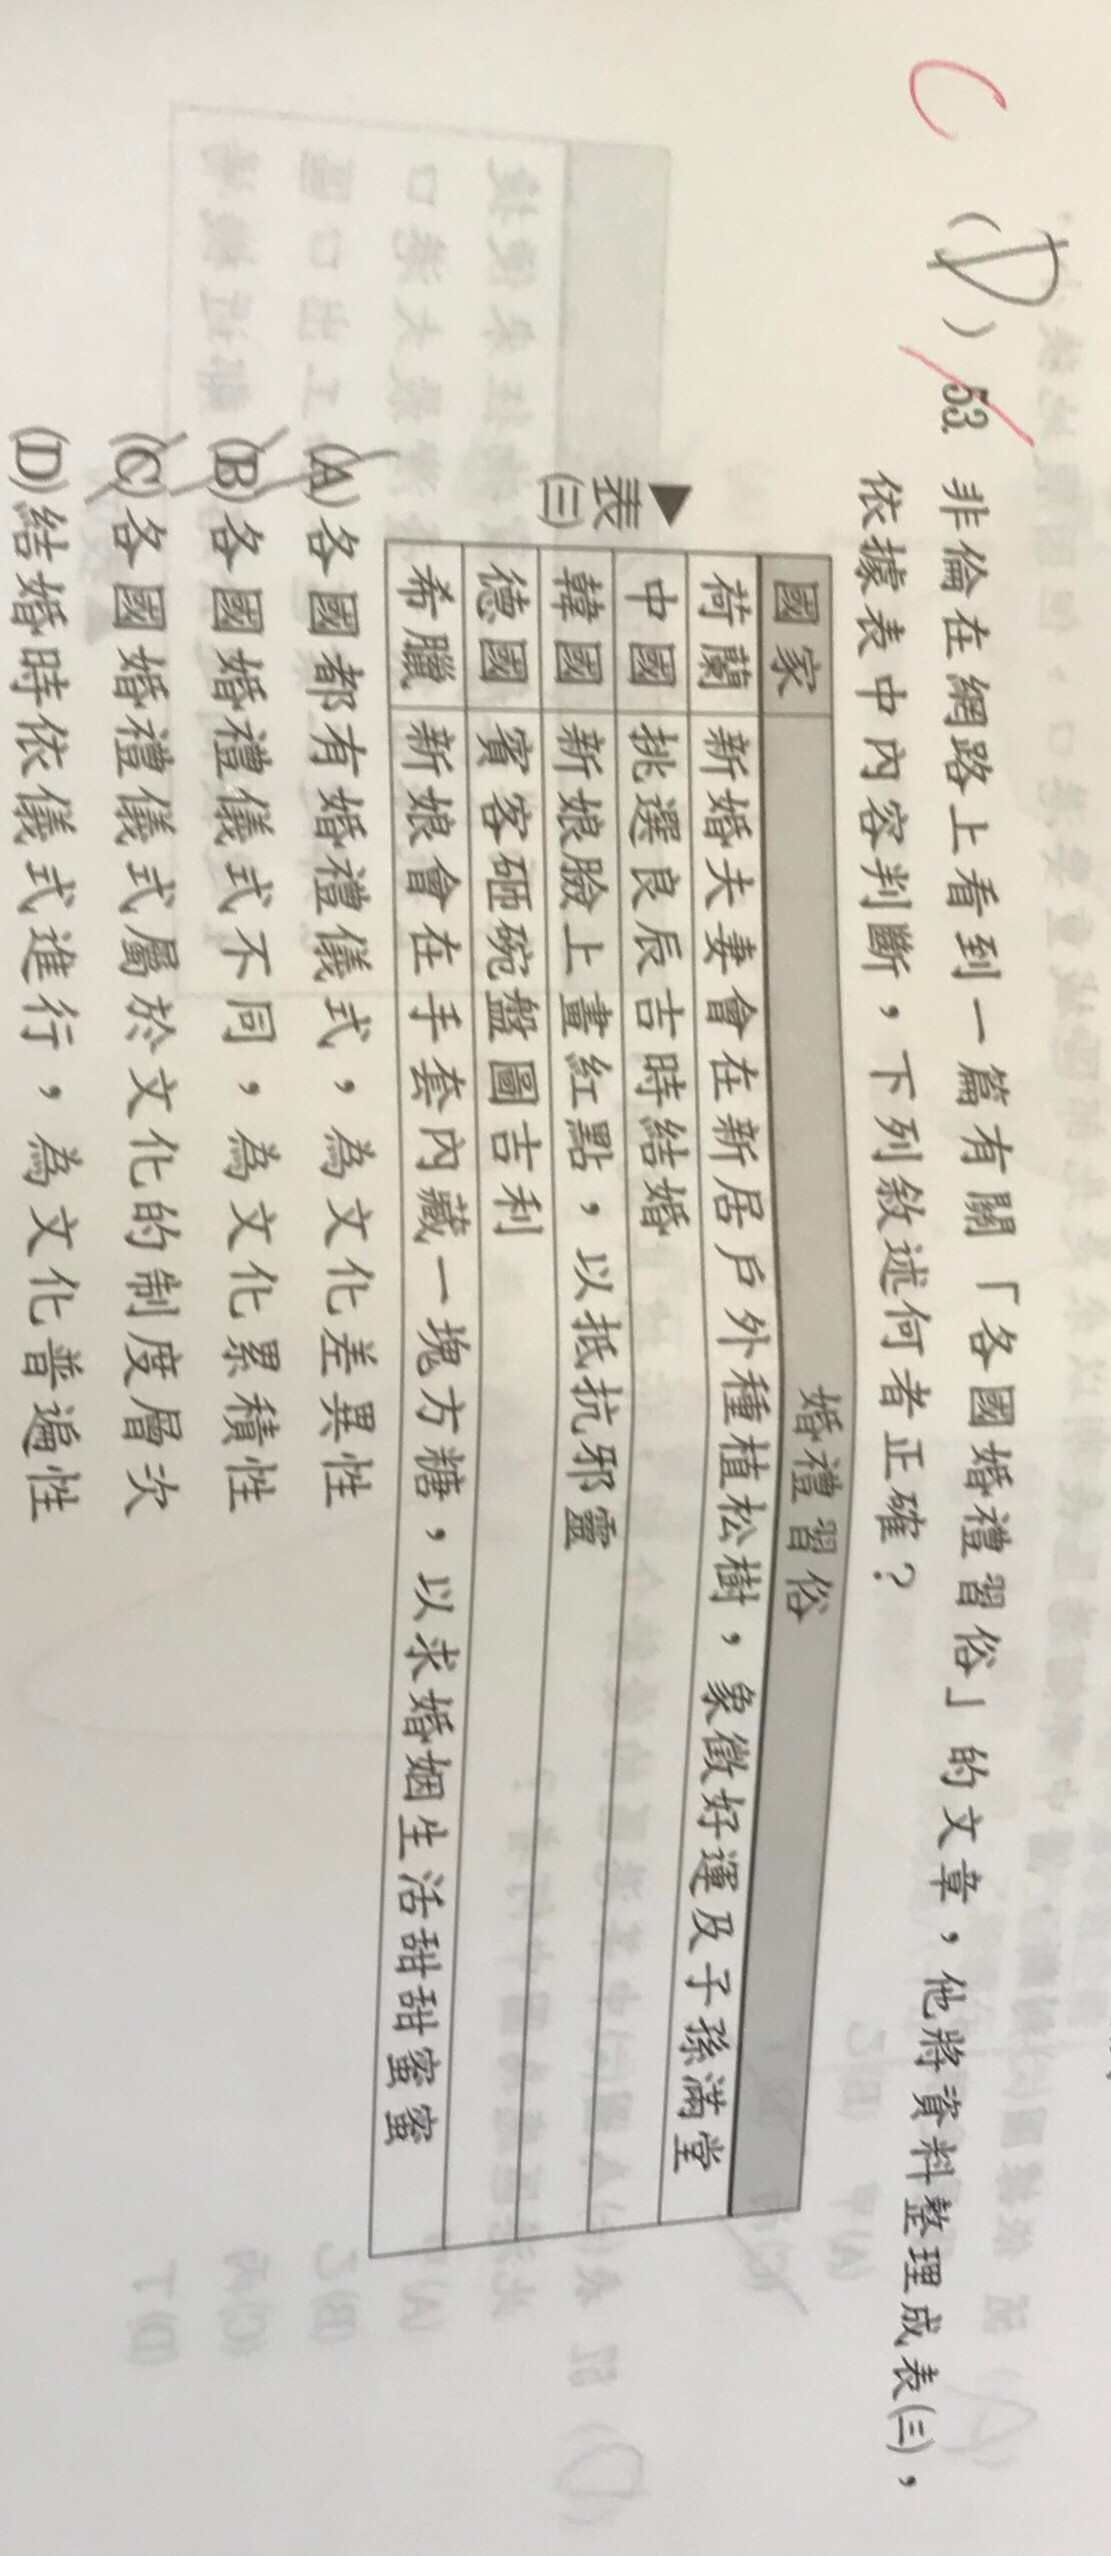 C
(D) 53. 非倫在網路上看到一篇有關「各國婚禮習俗」的文章，他將資料整理成表(三)，
依據表中內容判斷，下列敘述何者正確？
▼表(三)
國家 婚禮習俗
荷蘭 新婚夫妻會在新居戶外種植松樹，象徵好運及子孫滿堂
中國 挑選良辰吉時結婚
韓國 新娘臉上畫紅點，以抵抗邪靈
德國 賓客砸碗盤圖吉利
希臘 新娘會在手套內藏一塊方糖，以求婚姻生活甜甜蜜蜜
(A)各國都有婚禮儀式，為文化差異性
(B)各國婚禮儀式不同，為文化累積性
(C)各國婚禮儀式屬於文化的制度層次
(D)結婚時依儀式進行，為文化普遍性